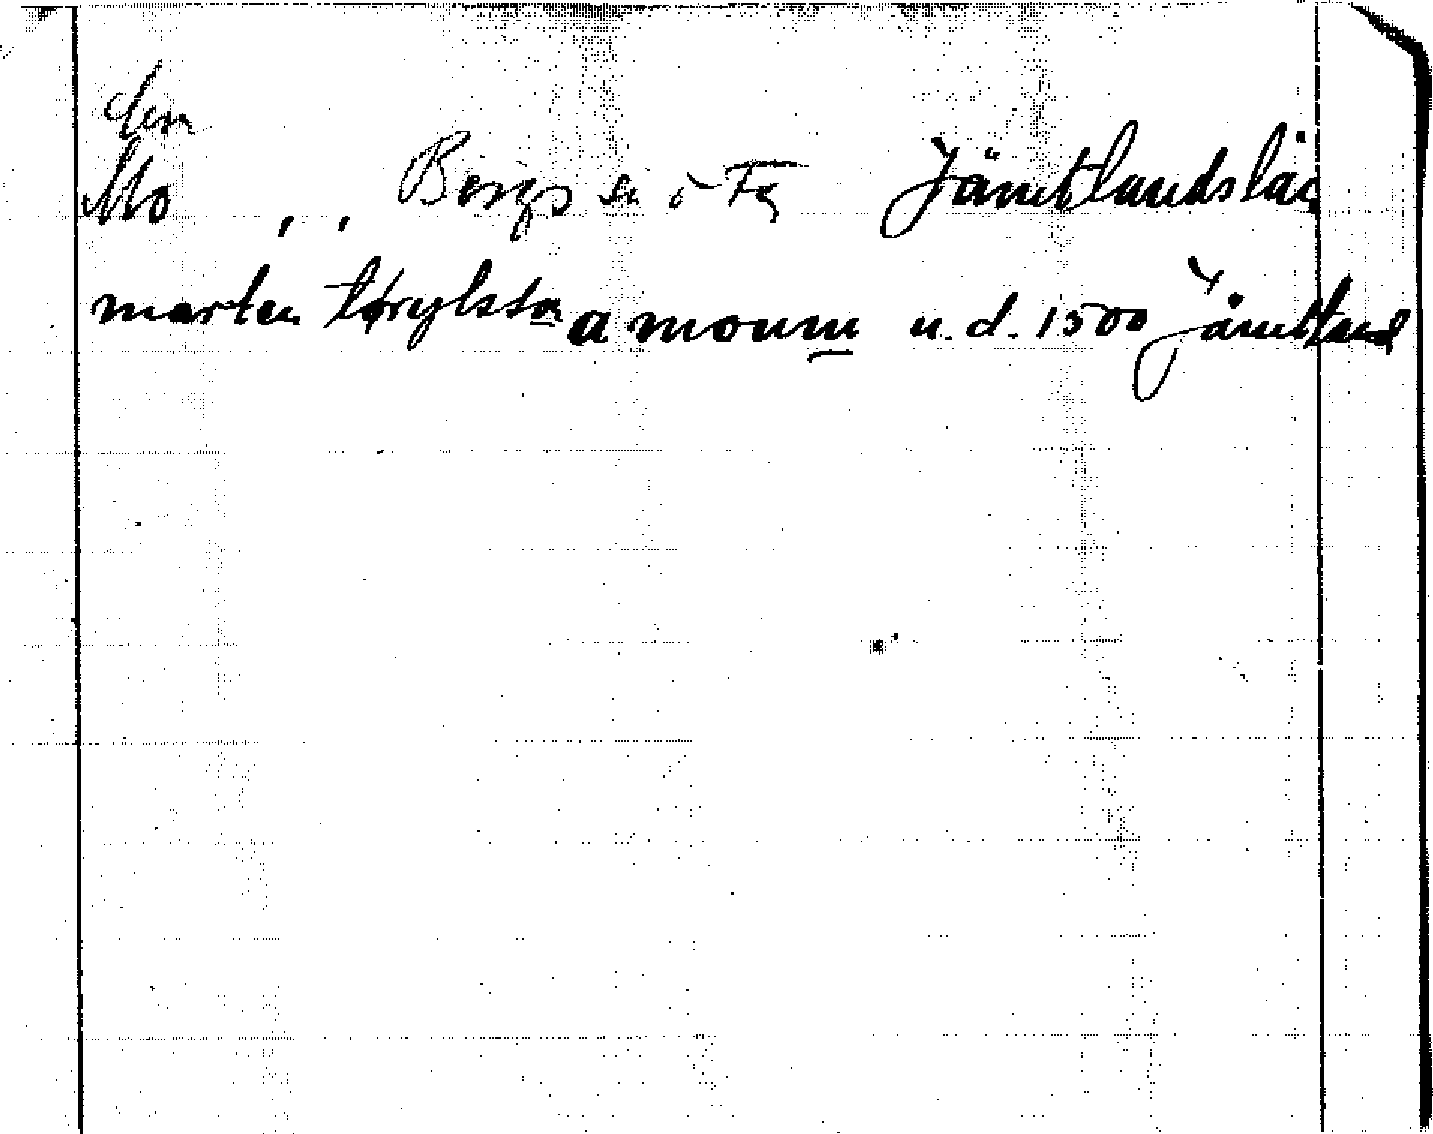 den
Mo , , Bergs sn i Fg Jämtlands län
marten tørylsson a moum u. d. 1500 Jämtland